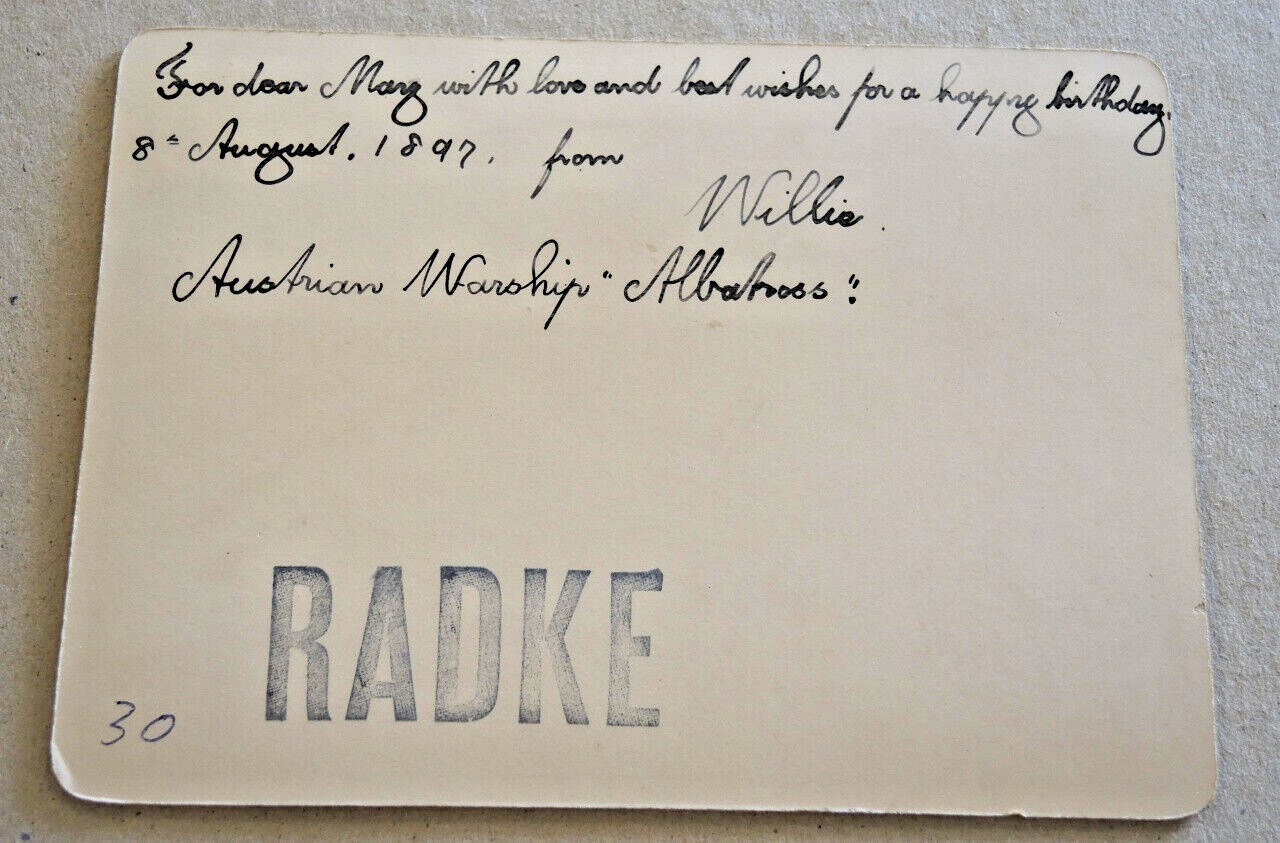 For dear Mary with love and best wishes for a happy birthday.
8th August. 1897. from
Willie.
Austrian Warship "Albatross".
RADKE
30